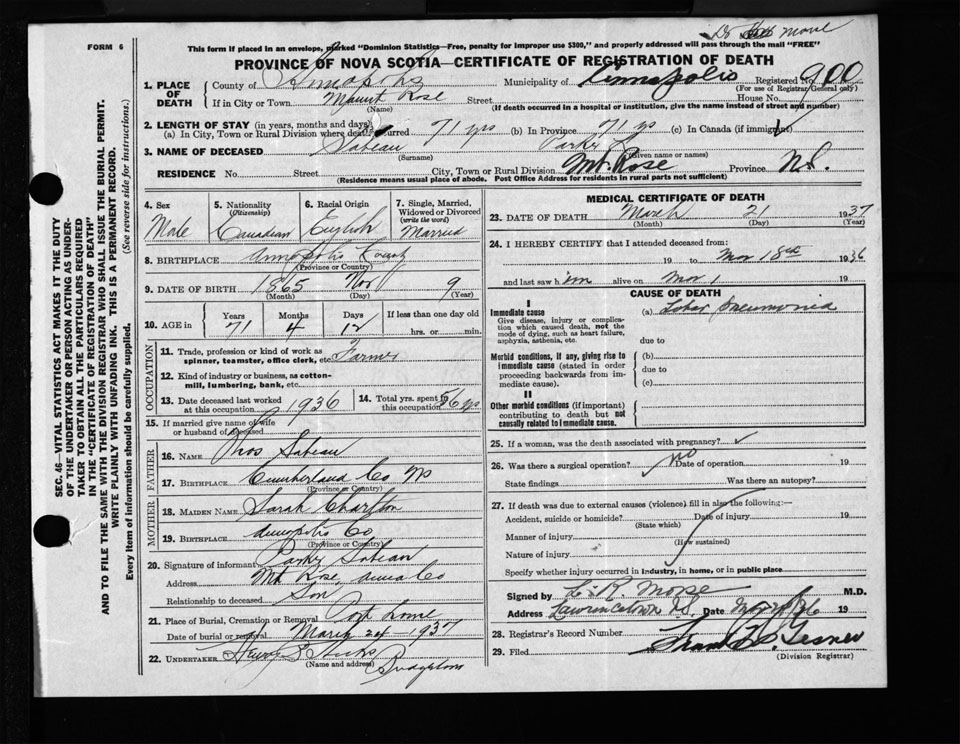 Dr Morse
FORM 6
This form if placed in an envelope, marked "Dominion Statistics—Free, penalty for improper use $300," and properly addressed will pass through the mail "FREE"
PROVINCE OF NOVA SCOTIA—CERTIFICATE OF REGISTRATION OF DEATH
1. PLACE OF DEATH County of Annapolis Municipality of Annapolis Registered No. 900
(For use of Registrar General only)
If in City or Town Mount Rose Street House No.
(Name) (If death occurred in a hospital or institution, give the name instead of street and number)
2. LENGTH OF STAY (in years, months and days)
(a) In City, Town or Rural Division where death occurred 71 yrs (b) In Province 71 ys (c) In Canada (if immigrant)
3. NAME OF DECEASED Sabean Parker
(Surname) (Given name or names)
RESIDENCE No. Street City, Town or Rural Division Mt. Rose Province N.S.
(Residence means usual place of abode. Post Office Address for residents in rural parts not sufficient)
4. Sex Male
5. Nationality (Citizenship) Canadian
6. Racial Origin English
7. Single, Married, Widowed or Divorced (write the word) Married
8. BIRTHPLACE Annapolis County
(Province or Country)
9. DATE OF BIRTH 1865 Nov 9
(Month) (Day) (Year)
10. AGE in Years 71 Months 4 Days 12 If less than one day old
hrs. or min.
OCCUPATION
11. Trade, profession or kind of work as spinner, teamster, office clerk, etc. Farmer
12. Kind of industry or business, as cotton-mill, lumbering, bank, etc.
13. Date deceased last worked at this occupation 1936
14. Total yrs. spent in this occupation 56 yrs
15. If married give name of wife or husband of deceased
FATHER
16. NAME Thos Sabean
17. BIRTHPLACE Cumberland Co NS
(Province or Country)
MOTHER
18. MAIDEN NAME Sarah Charlton
19. BIRTHPLACE Annapolis Co
(Province or Country)
20. Signature of informant Parker Sabean
Address Mt Rose, Anna Co
Relationship to deceased Son
21. Place of Burial, Cremation or Removal Port Lorne
Date of burial or removal March 24 - 1937
22. UNDERTAKER Henry S Hicks
(Name and address) Bridgetown
MEDICAL CERTIFICATE OF DEATH
23. DATE OF DEATH March 21 1937
(Month) (Day) (Year)
24. I HEREBY CERTIFY that I attended deceased from:
19 to Mar 18 1936
and last saw h im alive on Mar 1 19
CAUSE OF DEATH
I
Immediate cause (a) Lobar Pneumonia
Give disease, injury or complication which caused death, not the mode of dying, such as heart failure, asphyxia, asthenia, etc.
due to
Morbid conditions, if any, giving rise to immediate cause (stated in order proceeding backwards from immediate cause).
(b)
due to
(c)
II
Other morbid conditions (if important) contributing to death but not causally related to immediate cause.
25. If a woman, was the death associated with pregnancy?
26. Was there a surgical operation? no Date of operation 19
State findings Was there an autopsy?
27. If death was due to external causes (violence) fill in also the following:—
Accident, suicide or homicide? Date of injury 19
(State which)
Manner of injury
(How sustained)
Nature of injury
Specify whether injury occurred in industry, in home, or in public place
Signed by L. R. Morse M.D.
Address Lawrencetown N.S. Date 19
28. Registrar's Record Number
29. Filed 19
(Division Registrar)
SEC. 46—VITAL STATISTICS ACT MAKES IT THE DUTY
OF THE UNDERTAKER OR PERSON ACTING AS UNDER-
TAKER TO OBTAIN ALL THE PARTICULARS REQUIRED
IN THE "CERTIFICATE OF REGISTRATION OF DEATH"
AND TO FILE THE SAME WITH THE DIVISION REGISTRAR WHO SHALL ISSUE THE BURIAL PERMIT.
WRITE PLAINLY WITH UNFADING INK. THIS IS A PERMANENT RECORD.
Every item of information should be carefully supplied. (See reverse side for instructions.)